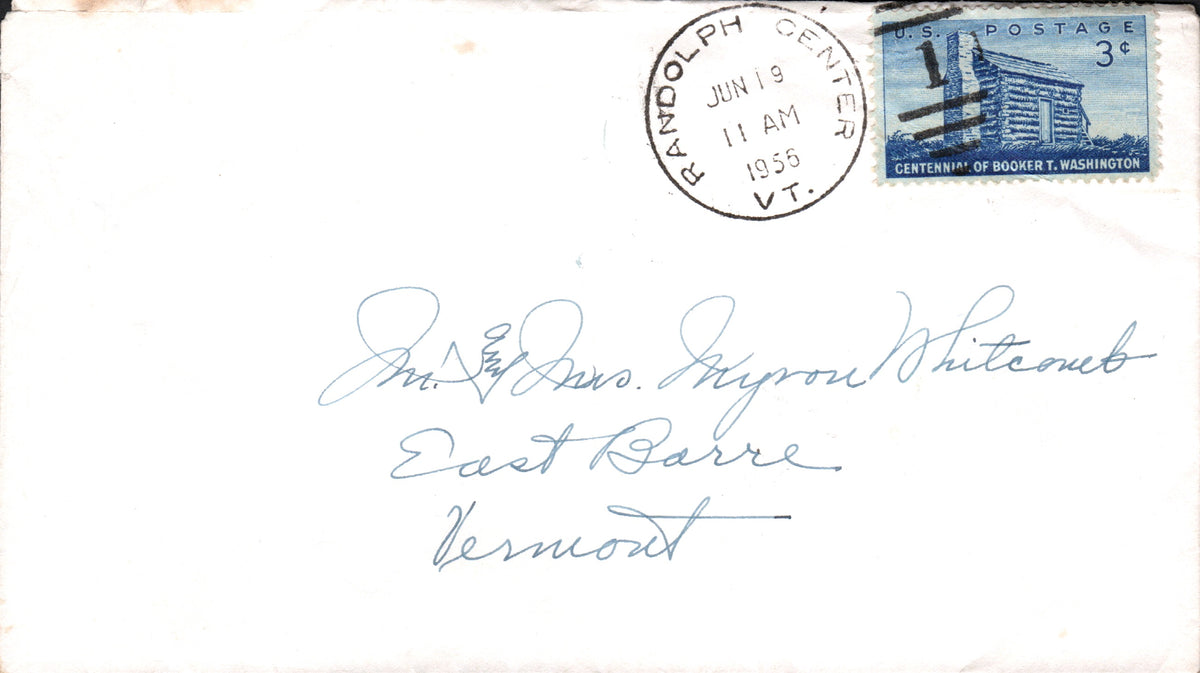 RANDOLPH CENTER
JUN 19
11 AM
1956
VT.
U.S. POSTAGE
3¢
1
CENTENNIAL OF BOOKER T. WASHINGTON
Mr. & Mrs. Myron Whitcomb
East Barre
Vermont